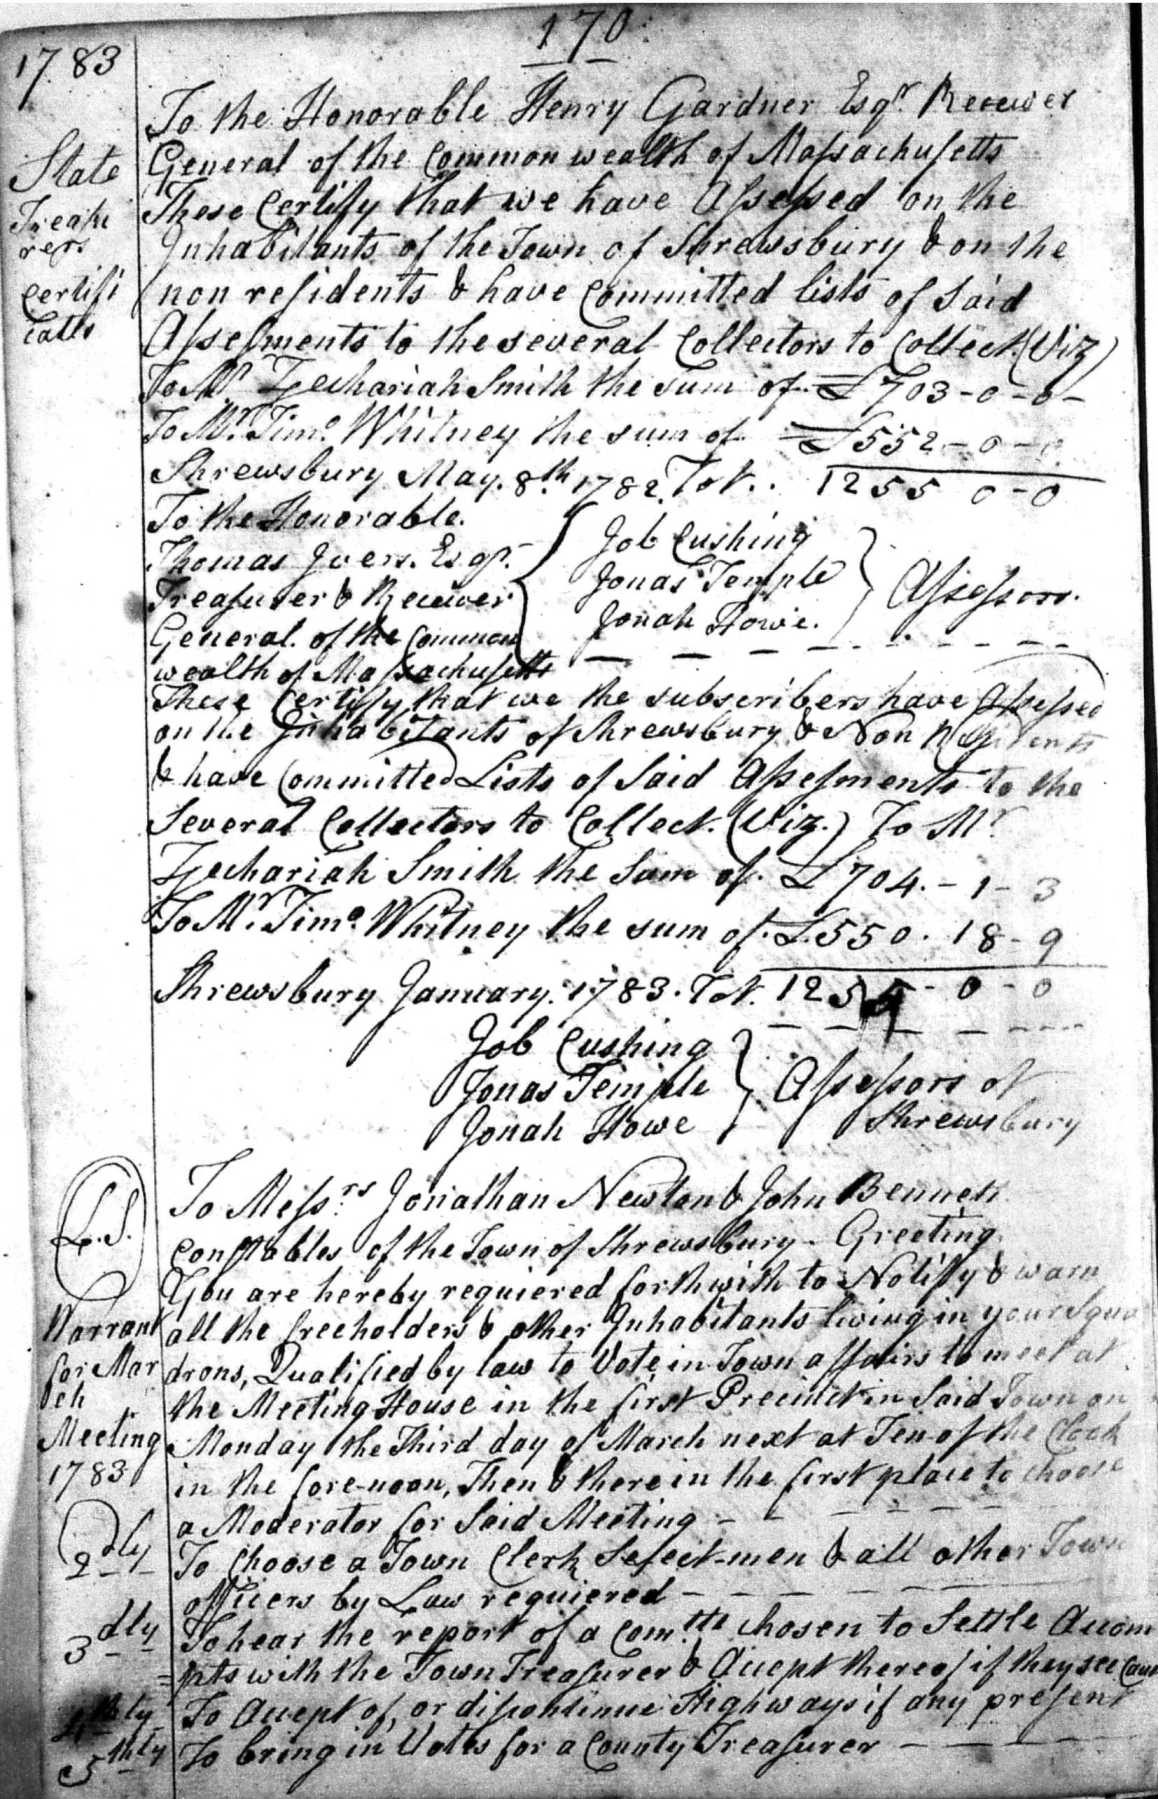 170
1783
To the Honorable Henry Gardner Esqr. Receiver
General of the Common wealth of Maſsachuſetts
State
Treaſu
rers
Certifi
cates
These Certify that we have Aſseſsed on the
Inhabitants of the Town of Shrewsbury & on the
non reſidents & have Committed lists of Said
Aſseſsments to the several Collectors to Collect (Viz)
To Mr. Zechariah Smith the Sum of £703-0-0-
To Mr. Timo. Whitney the sum of £552-0-0
Shrewsbury May. 8th. 1782. Tot. 1255 0-0
To the Honorable.
Thomas Ivers. Esqr.
Treaſurer & Receiver
General. of the Common
wealth of Maſsachuſetts
Job Cushing
Jonas Temple
Jonah Howe.
Aſseſsors.
These Certify that we the subscribers have Aſseſsed
on the Inhabitants of Shrewsbury & Non Reſidents
& have Committed Lists of Said Aſseſsments to the
Several Collectors to Collect. (Viz.) To Mr
Zechariah Smith the Sum of. £704.-1-3
To Mr. Timo. Whitney the sum of. £.550.18-9
Shrewsbury January. 1783. Tot. 1255-0-0
Job Cushing
Jonas Temple
Jonah Howe
Aſseſsors of
Shrewsbury
L.S.
To Meſsrs. Jonathan Newton & John Bennett
Conſtables of the Town of Shrewsbury- Greeting.
You are hereby requiered forthwith to Notify & warn
Warrant
for Mar
ch
Meeting
1783
all the freeholders & other Inhabitants living in your Squa
drons, Qualified by law to Vote in Town affairs to meet at
the Meeting House in the first Precinct in Said Town on
Monday the Third day of March next at Ten of the Clock
in the fore-noon, Then & there in the first place to choose
a Moderator for Said Meeting - - - - -
2dly To Choose a Town Clerk Select-men & all other Town
officers by Law requiered - - - -
3dly To hear the report of a Comtte. chosen to Settle Accom
pts with the Town Treaſurer & Accept thereof if they see Cauſe
4thly To Accept of, or diſcontinue Highways if any preſent
5thly To bring in Votes for a County Treaſurer - - - - -